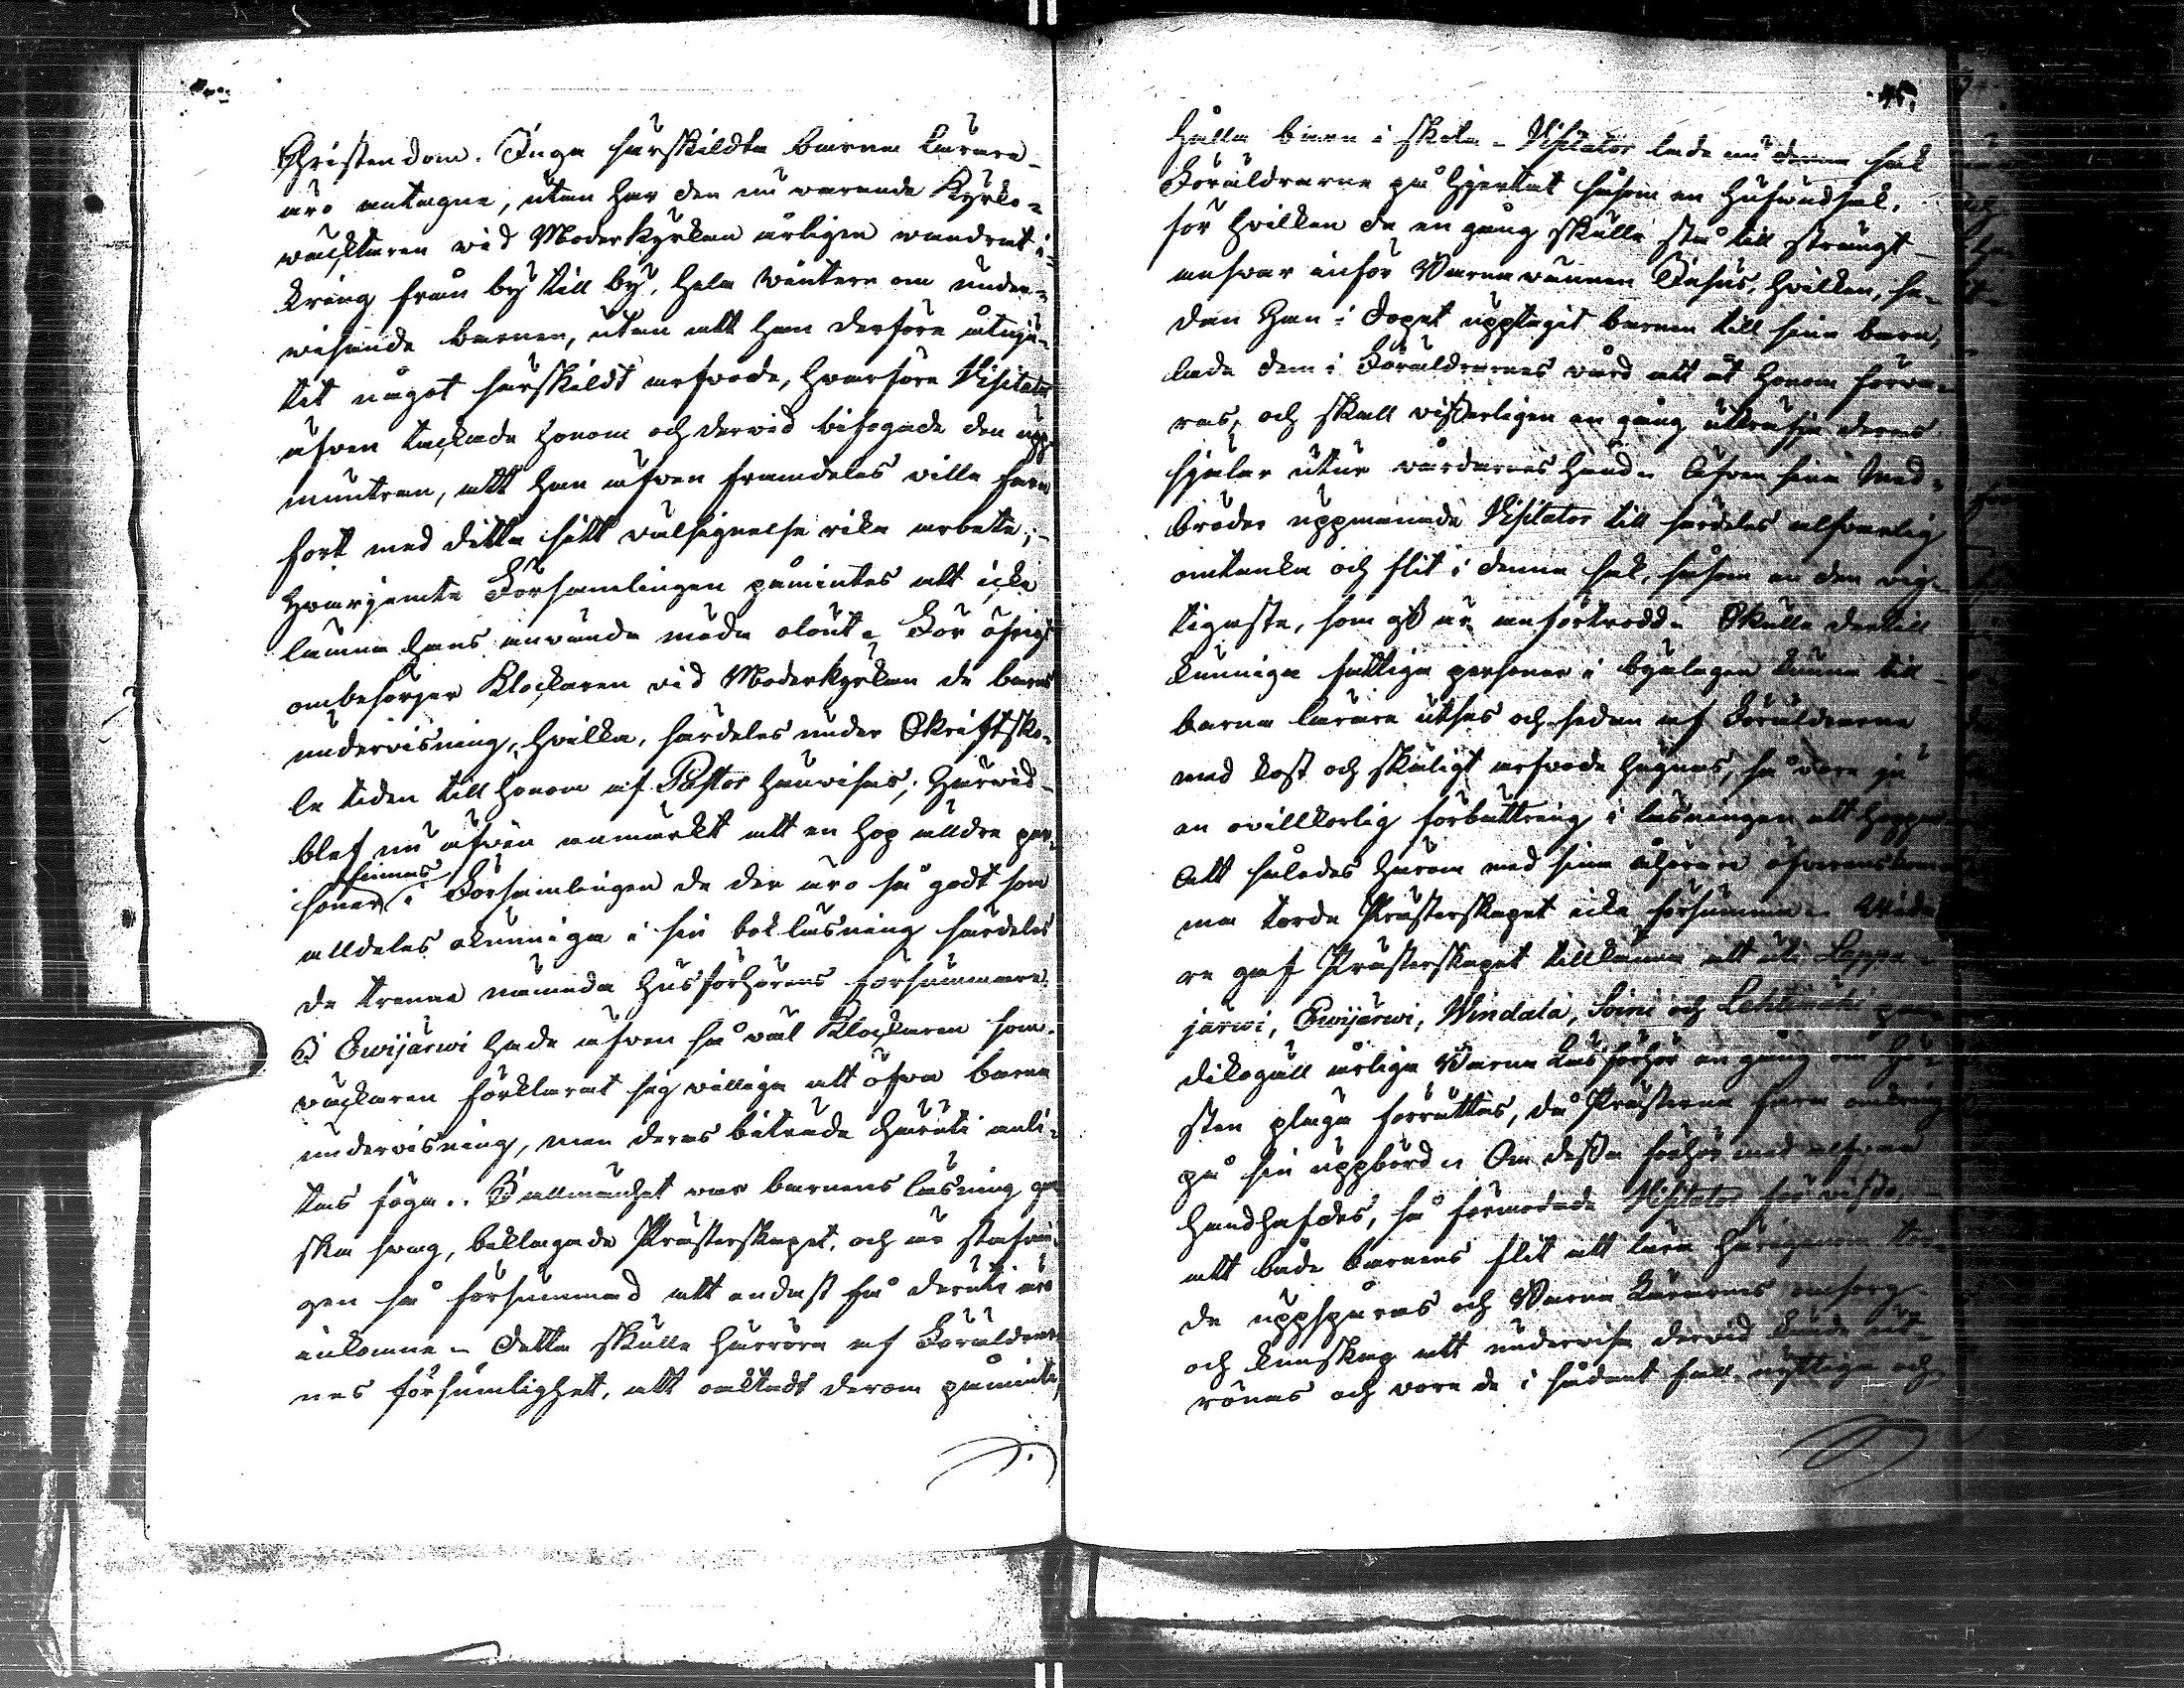 Christendom. Inga särskildta barna Lärare
äro antagne, utan har den nu warande Kyrko=
wäcktaren wid Moderkyrkan årligen wandrat i=
kring från by till by, hela wintern om under=
wisande barnen, utan att han derföre åtnju=
tit något särskildt arfvode, hwarföre Visitator
äfven tackade honom och dervid bifogade den upp=
muntran, att han äfven framdeles ville fara
fort med ditta sitt välsignelse rika arbete;
hvarjemte Församlingen påmintes att icke
lämna hans använda möda olönt. För öfrigt
ombesörjer Klockaren vid Moderkyrkan de barns
undervisning, hvilka, särdeles under Skriftsko=
le tiden till honom af Pastor hänvisas; Härvid
blef nu äfven anmärkt att en hop älldre per=
soner finnas i Församlingen de der äro så godt som
alldeles okunniga i sin bokläsning särdeles
de trenne nämnda husförhörens försummare.
I Ewijärwi hade äfven så väl Klockaren som
väcktaren förklarat sig villige att öfva barna
undervisning, men deras biträde häruti anli=
tas föga. I allmänhet var barnens läsning gan
ska svag, beklagade Prästerskapet, och är stafnin
gen så försummad att endast få deruti äro
inkomne. Detta skulle härröra af Föräldrar
nes försumlighet, att oaktadt derom påminte,
hålla barn i skola. Visitator lade nu denna sak
Föräldrarne på hjertat såsom en hufvudsak,
för hvilken de en gång skulle stå till strängt
ansvar inför Barnavännen Jesus, hvilken, se=
dan Han i dopet upptagit barnen till sina barn,
lade dem i Föräldrarnes vård att åt Honom förva=
ras, och skall visserligen en gång utkräfja deras
själar utur vårdarnes hand. Äfven sina Med=
bröder uppmanade Visitator till särdeles alfvarlig
omtanka och flit i denna sak, såsom en den vig=
tigaste, som oss är anförtrodd. Skulle dertill
kunniga fattiga personer i byalagen kunna till
barna lärare utses och sedan af Föräldrarne
med kost och skäligt arfvode hägnas, så vore ju
en ovillkorlig förbättring i läsningen att hoppas
Att således härom med sina åhörare öfverenskom
ma torde Prästerskapet icke försumma. Vida
re gaf Prästerskapet tillkänna att uti Lappa=
järwi, Ewijärwi, Windala, Soini och Lehtimäki
dikogäll årliga Barna Läsförhör en gång om hö=
sten pläga förrättas, då Prästerna fara omkring
på sin uppbörd. Om dessa förhör med alfvar
handhafdes, så förmodade Visitator för visso,
att både barnens flit att lära härigenom tor=
de uppspåras och Barna Lärarnes omsorg
och kunskap att undervisa dervid kunde ut=
rönas och vore de i sådant fall nyttiga och